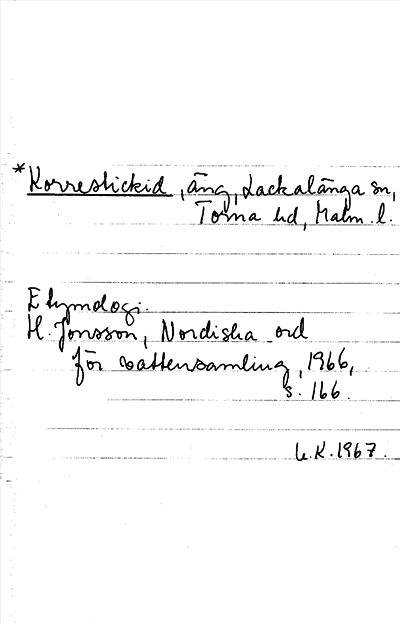 *Korrestickid, äng, Lackalänga sn,
Torna hd, Malm. l.
Etymologi.
H. Jonsson, Nordiska ord
för vattensamling, 1966,
s. 166.
U.K. 1967.